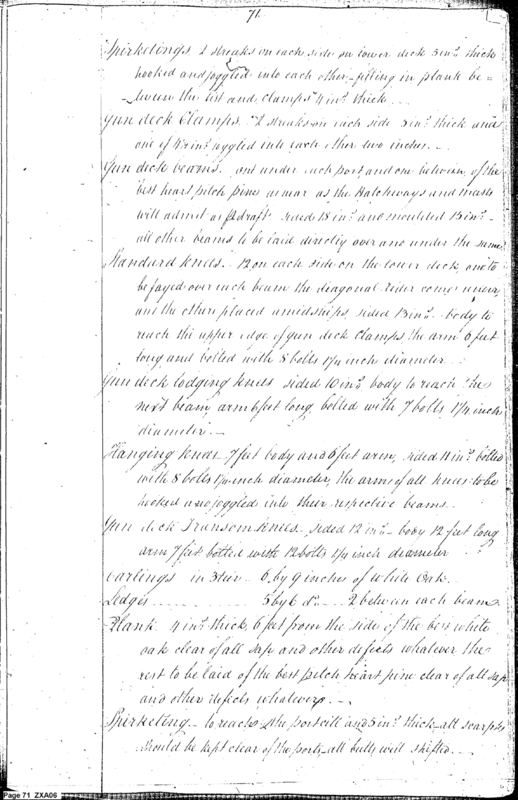 71.
Spirketings 2 streaks on each side on lower deck 5 inˢ thick
hooked and joggled into each other - filling in plank be=
-tween the list and clamps 4 inˢ thick
Gun deck Clamps. 2 streaks on each side 5 inˢ thick and
one of 4½ inˢ joggled into each other two inches.
Gun deck beams. one under each port and one between, of the
best heart pitch pine as near as the Hatchways and masts
will admit as pʳ draft sided 18 inˢ and moulded 15 inˢ -
all other beams to be laid directly over and under the same
Standard knees. 12 on each side on the lower deck, one to
be fayed over each beam the diagonal rider comes under,
and the others placed amidships, sided 13 inˢ body to
reach the upper edge of gun deck clamps, the arm 6 feet
long and bolted with 8 bolts 1¼ inch diameter.
Gun deck lodging knees sided 10 inˢ body to reach the
next beam, arm 6 feet long, bolted with 7 bolts, 1¼ inch
diameter.
Hanging knees. 7 feet body and 6 feet arm, sided 11 inˢ bolted
with 8 bolts 1¼ inch diameter, the arms of all knees to be
hooked and joggled into their respective beams.
Gun deck Transom knees. sided 12 inˢ body 12 feet long
arm 7 feet bolted with 12 bolts 1¼ inch diameter
Carlings in 3 tier 6 by 9 inches of White Oak.
Ledges 5 by 6 dᵒ 2 between each beam.
Plank 4 inˢ thick, 6 feet from the side of the best white
oak clear of all sap and other defects whatever the
rest to be laid of the best pitch heart pine clear of all sap
and other defects whatever.
Spirketing to reach the port cill and 5 inˢ thick all scarphs
should be kept clear of the ports, all butts well shifted.
Page 71 ZXA06